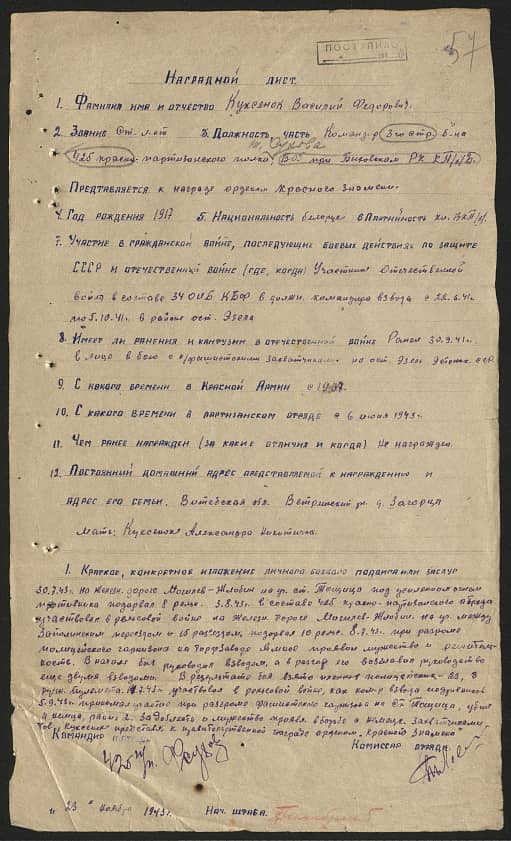 ПОСТУПИЛО
57
Наградной лист.
1. Фамилия имя и отчество Куксенок Василий Федорович.
2. Звание Ст. л-нт 3. Должность, часть Командир 3-го отр. б-на
425 краснопартизанского полка, В-05 при Быховском РК КП/б/Б.
Представляется к награде орденом Красного Знамени.
4. Год рождения 1917 5. Национальность белорус 6 Партийность чл. ВКП/б/.
7. Участие в гражданской войне, последующих боевых действиях по защите
СССР и отечественной войне (где, когда) Участник Отечественной
войны в составе 34 ОИБ КБФ в должн. командира взвода с 28.6.41г.
по 5.10.41г. в районе ост. Эзель
8. Имеет ли ранения и контузии в отечественной войне Ранен 30.9.41г.
в лицо в бою с н/фашистскими захватчиками на ост. Эзель Эстонск. ССР.
9. С какого времени в Красной Армии с 1937.
10. С какого времени в партизанском отряде с 6 июня 1943г.
11. Чем ранее награжден (за какие отличия и когда) Не награжден.
12. Постоянный домашний адрес представляемого к награждению и
адрес его семьи. Витебская обл. Ветринский р-н д. Загорца
Мать: Куксенок Александра Никитична.
1. Краткое, конкретное изложение личного боевого подвига или заслуг
30.7.43г. на желез. дороге Могилев-Жлобин на ур. ст. Тощица под усиленным огнем
противника подорвал 8 рельс. 3.8.43г. в составе 425 красно-партизанского отряда
участвовал в рельсовой войне на желез дороге Могилев-Жлобин. на ур. между
переездом и 15 разъездом, подорвал 10 рельс. при разгроме
полицейского гарнизона на торфзаводе проявил мужество и решитель-
ность. В начале был руководил взводом, а в разгар его возглавил руководство
еще двумя взводами. В результате боя взято пленных полицейских - 33,
участвовал в рельсовой войне, как ком-р взвода
5.9.43г. принимал участие при разгроме фашистского гарнизона на ст Тощица, убил
4 немца, ранил 2. За доблесть и мужество
тов. Куксенок представл. к правительственной награде орденом "Красного Знамени"
Командир
Комиссар отряда.
425
"23" ноября 1943г. Нач. штаба.